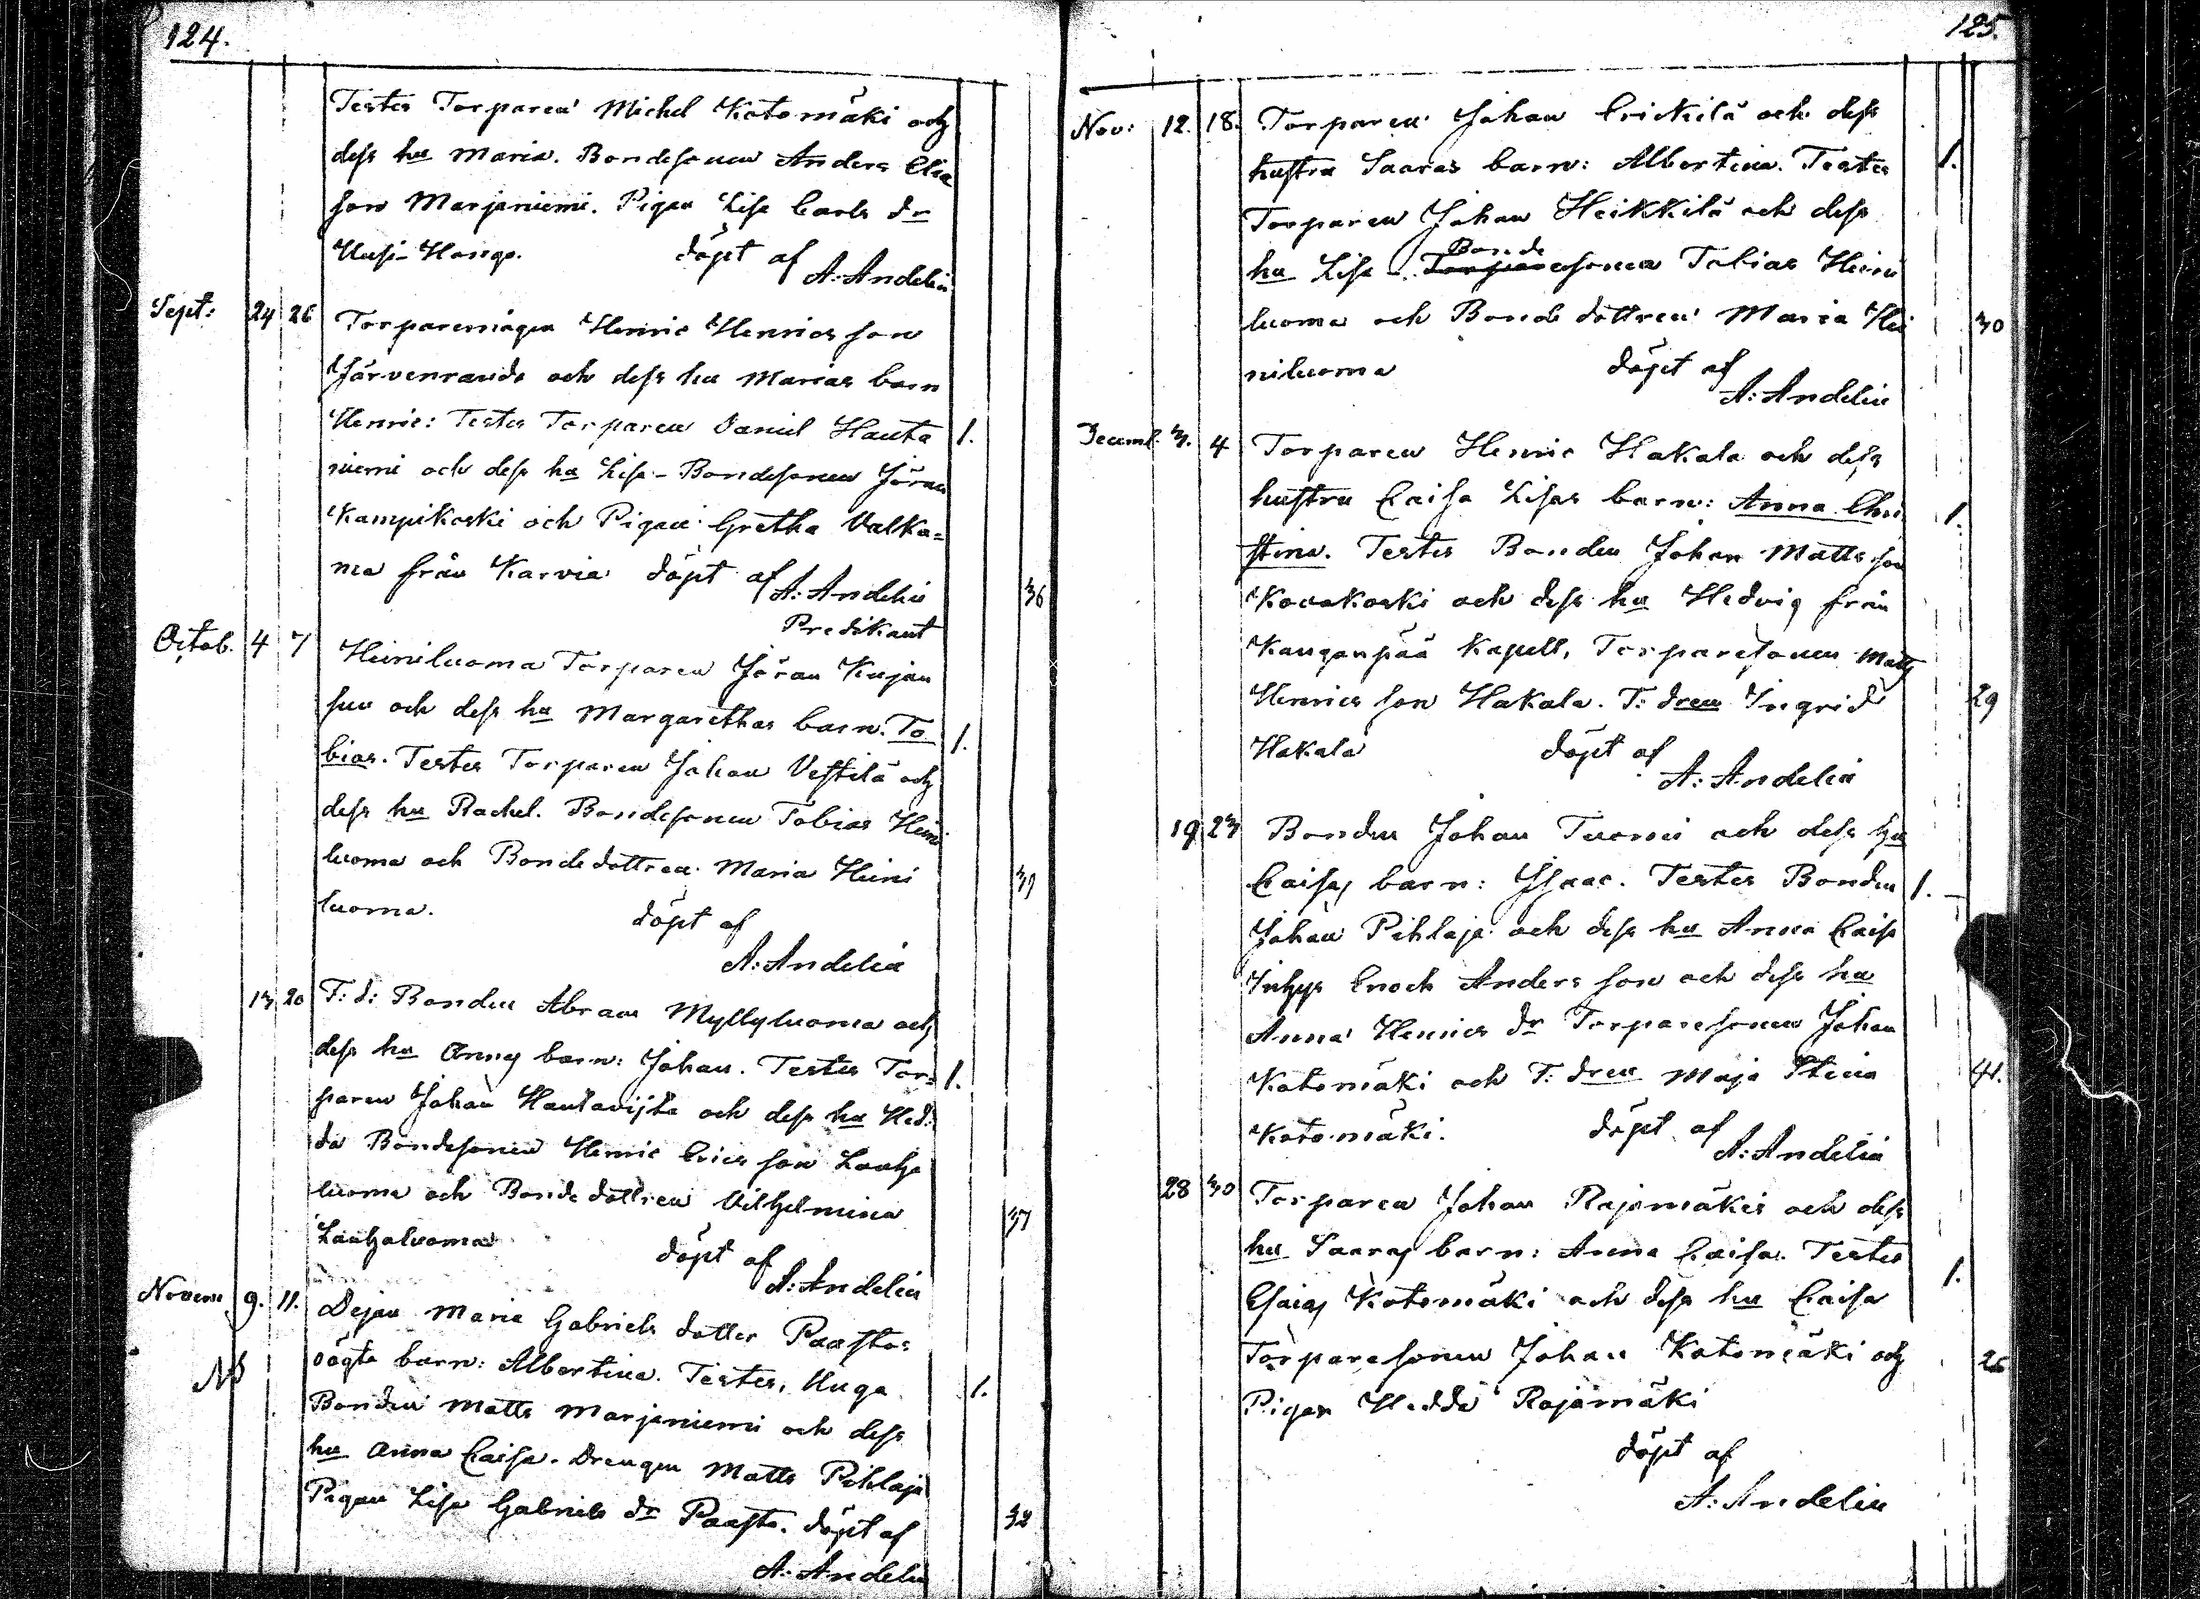 124.
Testes Torparen Michel Kotomäki och
dess hu Maria. Bondesonen Anders Elia
son Marjaniemi. Pigan Lisa Carls dr
Uusi-Hongo. döpt af
A: Andelin
Sept: 24 26 Torparemågen Henric Henrics son
Järvenranda och dess hu Marias barn
Henric: Testes Torparen Daniel Hauta 1.
niemi och dess hu Lisa - Bondesonen Jöran
Kampikoski och Pigan Gretha Valka=
ma från Karvia döpt af A: Andelin 36
Predikant
Octob. 4 7 Heiniluoma Torparen Jöran Kujan
suu och dess hu Margarethas barn. To 1.
bias. Testes Torparen Johan Vestilä och
dess hu Rachel. Bondesonen Tobias Heini
luoma och Bondedottren Maria Heini 39
luoma. döpt af
A: Andelin
13 20 F: d: Bonden Abram Myllyluoma och
dess hu Annas barn: Johan. Testes Tor= 1.
paren Johan Hautavijta och dess hu Hed:
da Bondesonen Henric Erics son Lauha
luoma och Bonde dottren Vilhelmina 37
Lauhaluoma döpt af
A: Andelin
Novem 9. 11. Dejan Maria Gabriels dotter Paasto=
oägta barn: Albertina. Testes, Unga 1.
NB
Bonden Matts Marjaniemi och dess
hu Anna Caisa. Drengen Matts Pihlaja
Pigan Lisa Gabriels dr Paasto. döpt af 32
A: Andelin
125.
Nov: 12. 18. Torparen Johan Erickilä och dess
hustru Saaras barn: Albertina. Testes 1.
Torparen Johan Heikkilä och dess
Bonde
hu Lisa - sonen Tobias Heini
luoma och Bonde dottren Maria Hei 30
niluoma döpt af
A: Andelin
Decemb. 3. 4 Torparen Henric Hakala och dess
hustru Caisa Lisas barn: Anna Chri 1.
stina. Testes Bonden Johan Matts son
Kovakoski och dess hu Hedvig från
Kanganpää Kapell, Torparesonen Matts
Henrics son Hakala. T: dren Ingrid 29
Hakala döpt af
A: Andelin
19 23 Bonden Johan Tuomi och dess hu
Caisas barn: Isaac. Testes Bonden 1.
Johan Pihlaja och dess hu Anna Caisa
Inhys Enoch Anders son och dess hu
Anna Henrics dr Torparesonen Johan
Kotomäki och T: dren Maja Stina 41.
Kotomäki. döpt af
A: Andelin
28 30 Torparen Johan Rajamäkis och dess
hu Saaras barn: Anna Caisa. Testes 1.
Esaias Kotomäki och dess hu Caisa
Torparesonen Johan Kotomäki och 26
Pigan Hedda Rajamäki
döpt af
A: Andelin